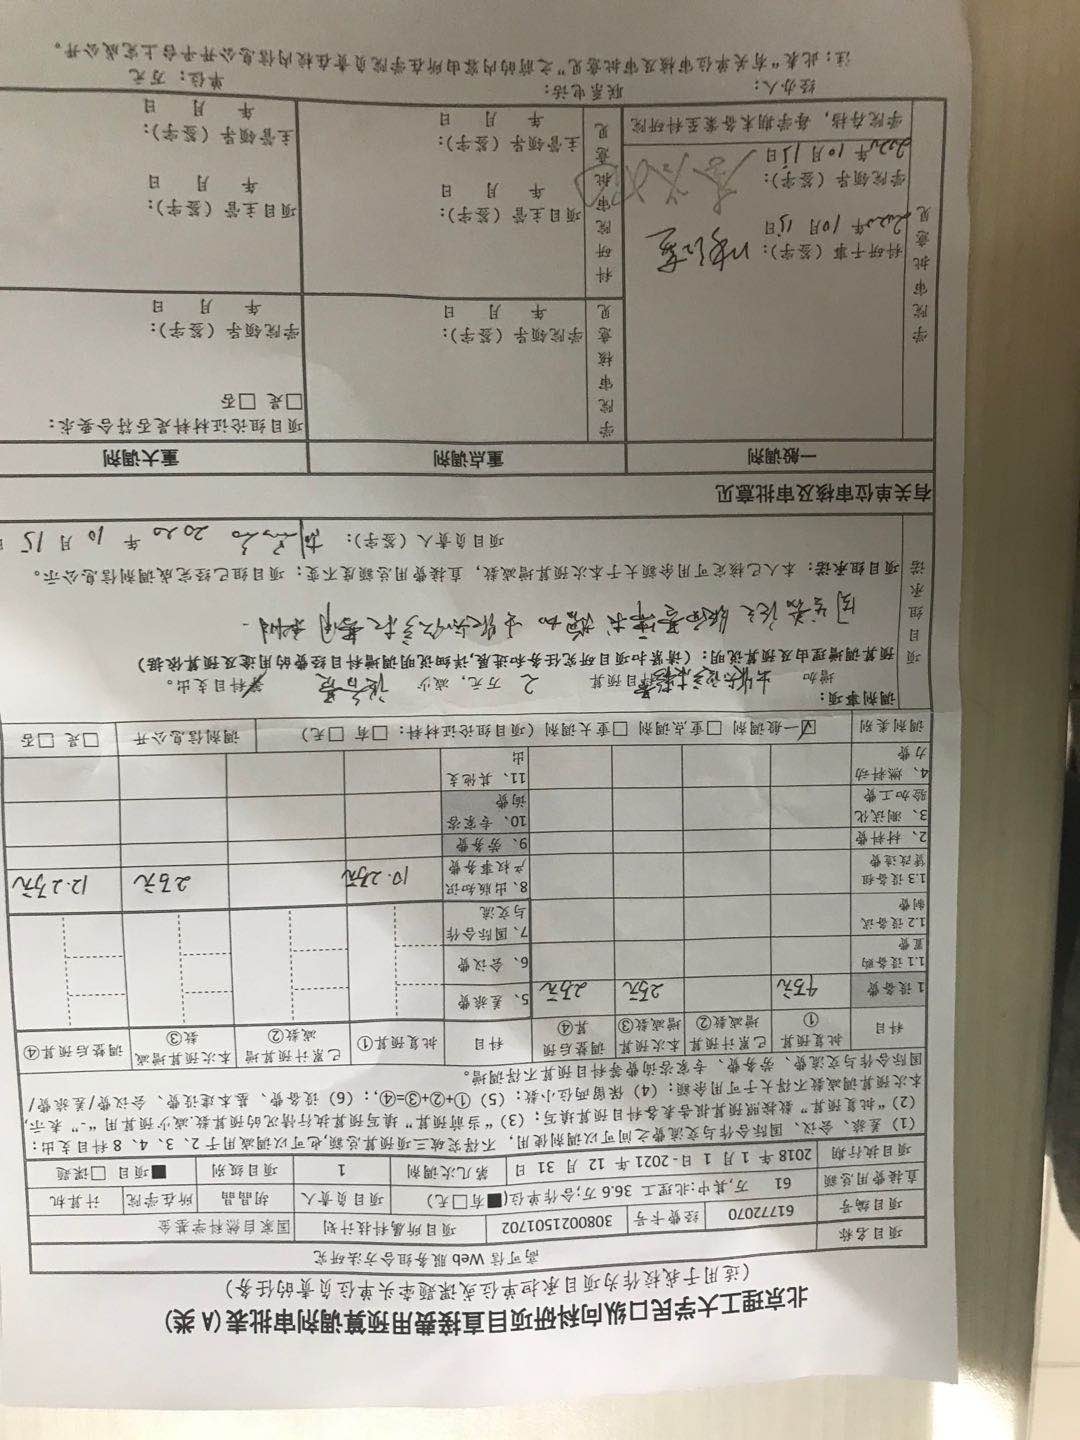 北京理工大学民口纵向科研项目直接费用预算调剂审批表(A类)
(适用于我校作为项目承担单位或课题牵头单位负责的任务)
项目名称 高可信 Web 服务组合方法研究
项目编号 61772070 经费卡号 3080021501702 项目所属科技计划 国家自然科学基金
直接费用总额 61 万,其中:北理工 36.6 万;合作单位(■有□无) 项目负责人 胡晶晶 所在学院 计算机
项目执行期 2018 年 1 月 1 日-2021 年 12 月 31 日 第几次调剂 1 项目级别 ■项目 □课题
(1)差旅、会议、国际合作与交流费之间可以调剂使用,不得突破三项预算总额,也可以调减用于 2、3、4、8 科目支出;
(2)“批复预算”数按照预算报告表各科目预算填写;(3)“当前预算”填写预算执行情况的预算数,减少预算用“-”表示,
本次预算调减数不得大于可用余额;(4)保留两位小数;(5)①+②+③=④,;(6)设备费、基本建设费、会议费/差旅费/
国际合作与交流费、劳务费、专家咨询费等科目预算不得调增。
科目 批复预算① 已累计预算增减数② 本次预算增减数③ 调整后预算④ 科目 批复预算① 已累计预算增减数② 本次预算增减数③ 调整后预算④
1 设备费 4万元 2万元 2万元 5、差旅费
1.1 设备购置费 6、会议费
1.2 设备试制费 7、国际合作与交流
1.3 设备租赁改造费 8、出版知识产权事务费 10.2万元 2万元 12.2万元
2、材料费 9、劳务费
3、测试化验加工费 10、专家咨询费
4、燃料动力费 11、其他支出
调剂类别 ☑一般调剂 □重点调剂 □重大调剂(项目组论证材料:□有 □无) 调剂信息公开 □是 □否
项目组承诺
调剂事项:
增加 科目预算 2 万元,减少 设备费 科目支出。
预算调增理由及预算说明:(请紧扣项目研究任务和进展,详细说明调增科目经费的用途及预算依据)
项目组承诺:本人已核定可用余额大于本次预算增减数,直接费用总额度不变;项目组已经完成调剂信息公示。
项目负责人(签字): 2020 年 10 月 15 日
有关单位审核及审批意见
一般调剂 重点调剂 重大调剂
学院审批意见
科研干事(签字):
2020年 10月 15日
学院领导(签字):
2020年 10月 15日
学院存档,每学期末备案至科研院
学院审核意见
学院领导(签字):
年 月 日
项目组论证材料是否符合要求:
□是 □否
学院领导(签字):
年 月 日
科研院审批意见
项目主管(签字):
年 月 日
主管领导(签字):
年 月 日
项目主管(签字):
年 月 日
主管领导(签字):
年 月 日
经办人: 联系电话: 单位:万元
注:此表“有关单位审核及审批意见”之前的内容由所在学院负责在校内信息公开平台上完成公开。